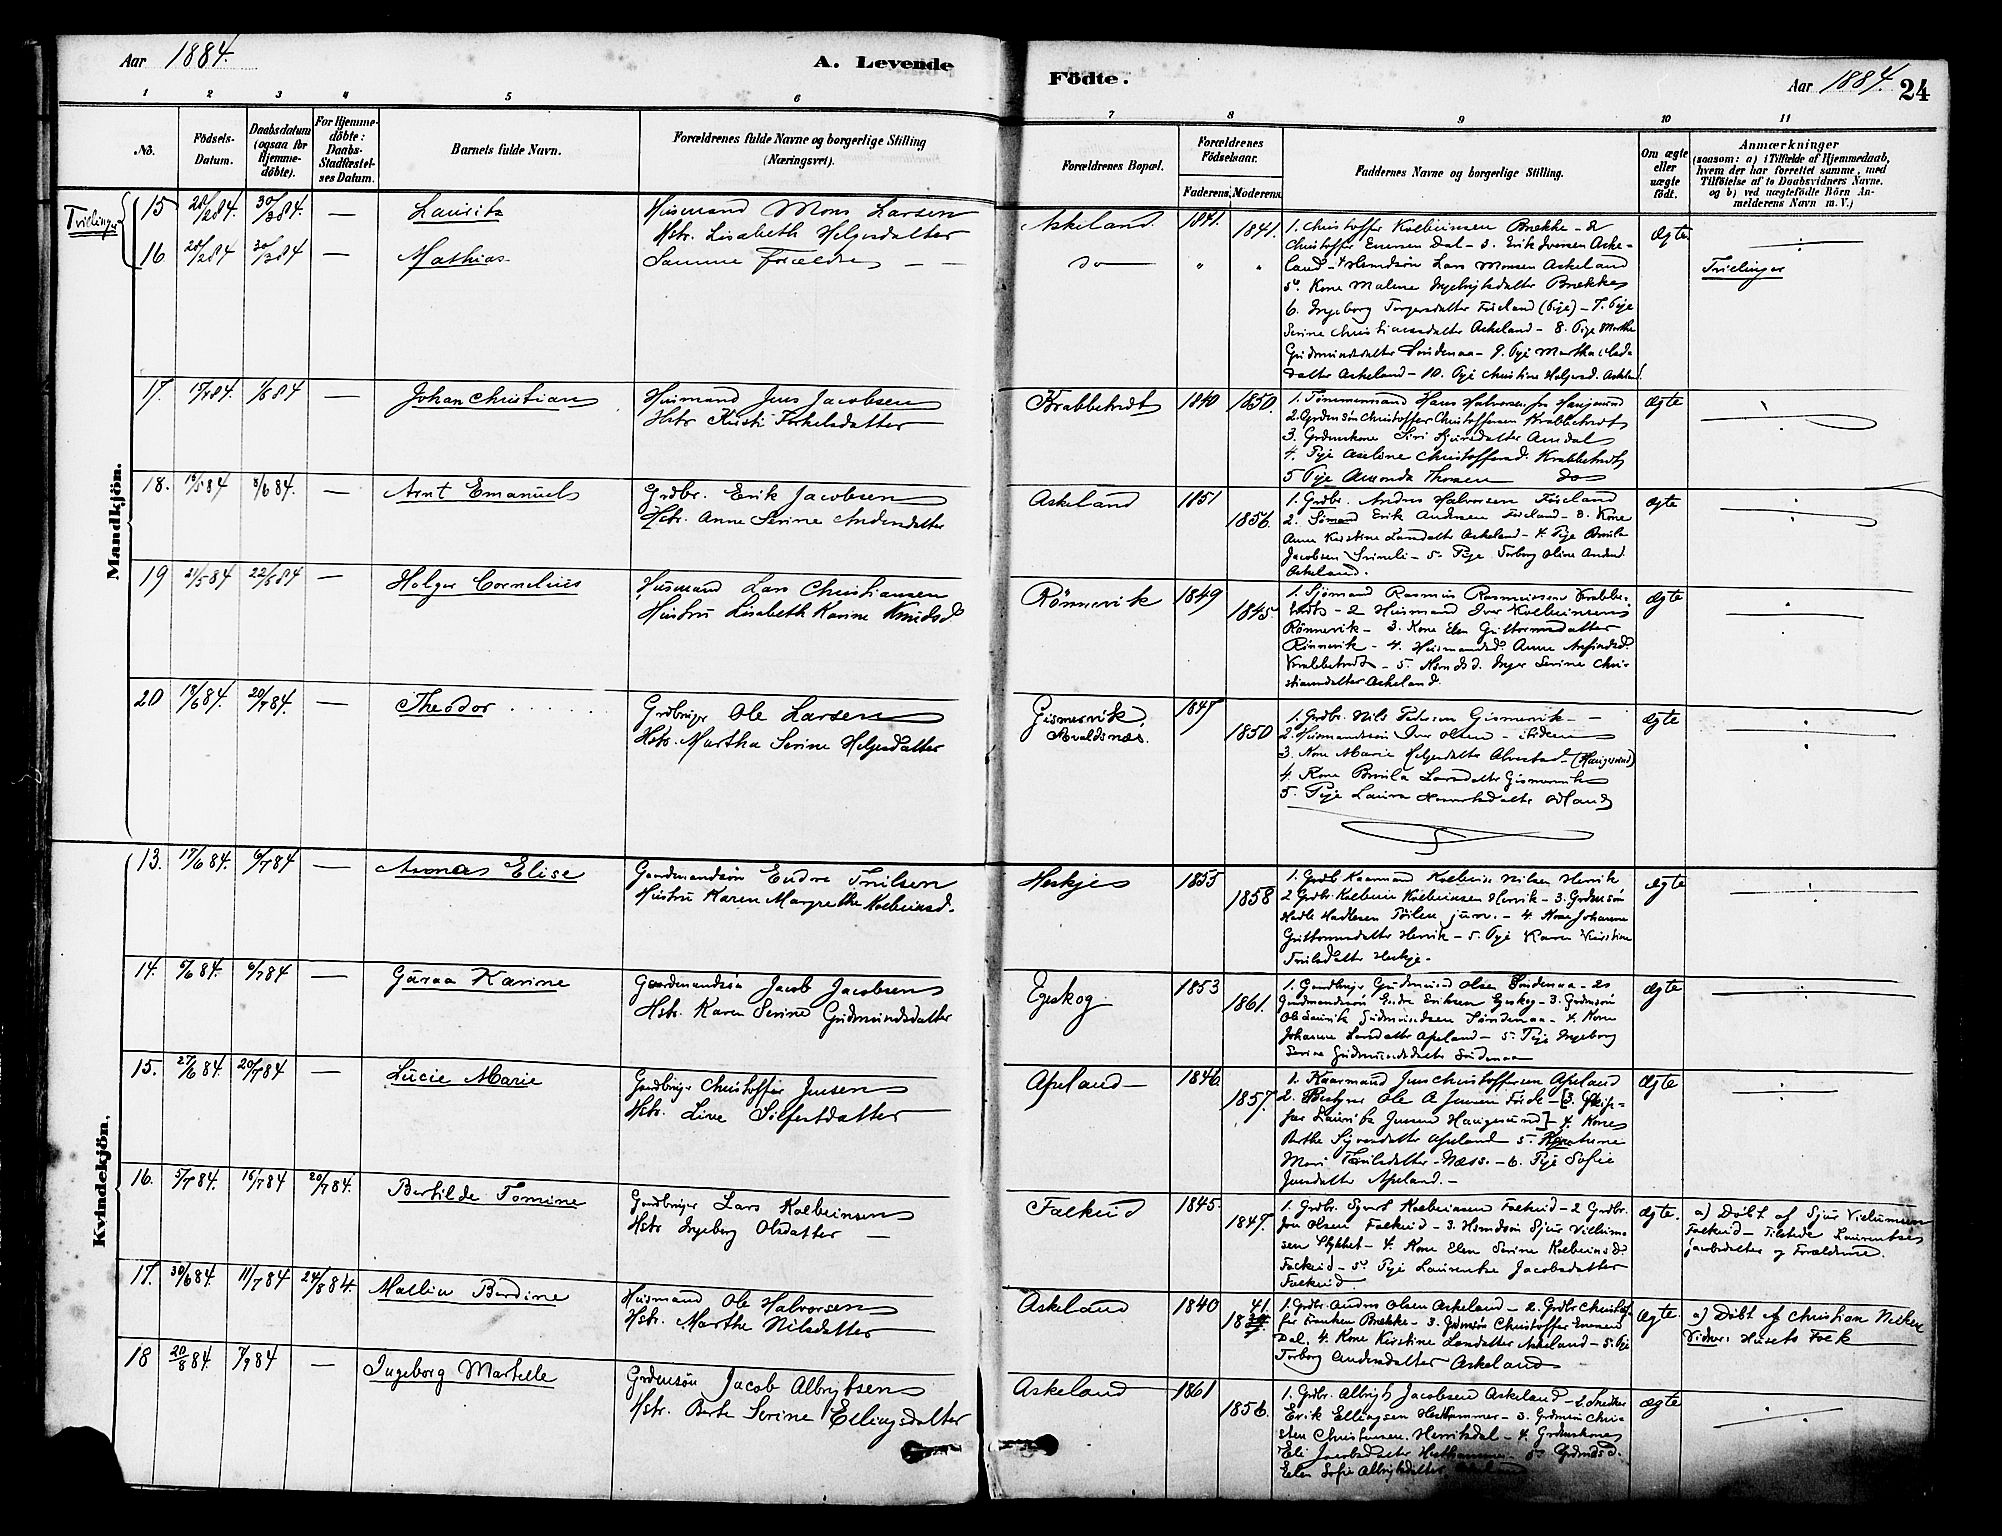 Aar 1884. A. Levende
Födte. Aar 1884. 24
1 2 3 4 5 6
7 8 9 10 11
No. Födsels-Datum. Daabsdatum (ogsaa for Hjemme-döbte). For Hjemme-döbte: Daabs-Stadfæstel-ses Datum. Barnets fulde Navn. Forældrenes fulde Navne og borgerlige Stilling (Næringsvei).
Forældrenes Bopæl. Forældrenes Födselsaar. Faderens. Moderens. Faddernes Navne og borgerlige Stilling. Om ægte eller uægte födt. Anmærkninger
(saasom: a) i Tilfælde af Hjemmedaab, hvem der har forrettet samme, med Tilföielse af to Daabsvidners Navne, og b) ved uægtefödte Börn An-melderens Navn m. V.)
Mandkjön.
Tvillinger
15 28/2 84. 30/3 84. — Lauritz Husmand Mons Larsen
Hstr. Lisabeth Helgesdatter
Askeland. 1841. 1841. ægte
16 28/2 84 30/3 84 — Mathias Samme Forældre
do " " Tvillinger
1. Christoffer Kolbeinsen Brække - 2
Christoffer Enersen Dal - 3. Erik Iversen Aske-
land - 4 Hsmdsön Lars Monsen Askeland
5. Kone Malene Ingebrigtsdatter Brække
6. Ingeborg Torgersdatter Friland (Pige) - 7. Pige
Serine Christiansdatter Askeland - 8. Pige Marthe
Gudmundsdatter Söndenaa - 9. Pige Martha
datter Askeland - 10. Pige Christine Helgesd. Askeland.
17. 15/ 84. 1/6 84 — Johan Christian Husmand Jens Jacobsen
Hstr Kirsti Torkelsdatter
Krabbetvedt 1840 1850. ægte
1. Tömmermand Hans Halvorsen fra Haugesund
2. Grdmsön Christoffer Christoffersen Krabbetvedt
3. Grdmskone Siri Sjursdatter Amdal
4. Pige Aseline Christoffersd. Krabbetvedt
5 Pige Amanda Thomsen do
18. 10/5 84 8/6 84. — Arnt Emanuel Grdbr. Erik Jacobsen
Hstr. Anne Serine Andersdatter
Askeland 1851 1856. ægte
1. Grdbr. Anders Halvorsen Friland
2. Sömand Erik Andersen Friland - 3. Kone
Anne Kirstine Larsdatter Askeland - 4. Pige Brita
Jacobsen - 5. Pige Torborg Oline Andersd
Askeland.
19 21/5 84 22/6 84 — Holger Cornelius Husmand Lars Christiansen
Hustru Lisabeth Karine Knudsd
Rönnevik 1849 1845. ægte
1. Sjömand Rasmus Rasmussen Krabbe-
tvedt - 2 Husmand Iver Kolbeinsen
Rönnevik - 3. Kone Elen Guttormsdatter
Rönnevik - 4. Husmandsd. Anne Arfindsd.
Krabbetvedt - 5. Hsmdsd. Inger Serine Chri-
stiansdatter Askeland.
20 18/6 84. 20/7 84. — Theodor Grdbruger Ole Larsen
Hstr. Martha Serine Helgesdatter
Gismervik. Avaldsnæs. 1847 1850 ægte
1. Grdbr. Nils Pedersen Gismervik -
2. Husmandssön Iver Olsen - ibidem
3. Kone Marie Helgesdatter Alvestad - (Haugesund)
4. Kone Brita Larsdatter Gismervik
5. Pige Laura
Kvindekjön.
13. 17/6 84. 6/7 84 — Elise Gaardmandsön Endre Truilsen
Hustru Karen Margrethe Kolbeinsd.
Heskje 1855 1858 ægte
1. Grdb Kaarmand Kolbein Nilsen Hervik
2 Grdbr Kolbein Kolbeinsen Hervik - 3. Grdmsön
Hadle Hadlesen Töllen junr. - 4. Kone Johanne
Guttormsdatter Hervik - 5. Pige Karen Kirstine
Truilsdatter Heskje.
14. 5/6 84. 6/7 84 — Guraa Karine Gaardmandsön Jacob Jacobsen
Hstr. Karen Serine Gudmundsdatter
Egeskog 1853 1861. ægte
1. Gaardbruger Gudmund Olsen Söndenaa - 2
Gaardmandssön Endre Eriksen Egeskog - 3. Grdmsön
Gudmundsen Söndenaa - 4. Kone
Johanne Larsdatter Apeland - 5. Pige Ingeborg
Serine Gudmundsdatter Söndenaa
15. 27/6 84. 20/7 84 — Lucie Marie Gaardbruger Christoffer Jensen
Hstr. Live Silfertdatter
Apeland 1846. 1857. ægte
1. Kaarmand Jens Christoffersen Apeland
2. Ole A Jensen Förde - [3.
Lauritz Jensen Haugesund] - 4. Kone
Berthe Sjursdatter Apeland 5. Kone
Mari Truilsdatter Næss. - 6. Pige Sofie
Jensdatter Apeland. -
16. 5/7 84. 16/7 84 20/7 84. Bertilde Tomine Gaardbruger Lars Kolbeinsen
Hstr Ingeborg Olsdatter —
Falkeid 1845. 1847. ægte.
1. Grdbr. Sjurt Kolbeinsen Falkeid - 2 Grdbr.
Jon Olsen Falkeid - 3. Hsmdsön Sjur Villum-
sen Stykket - 4. Kone Elen Serine Kolbeinsd.
Falkeid - 5. Pige Laurentse Jacobsdatter
Falkeid
a) Döbt af Sjur Villumsen
Falkeid - Tilstede Laurentse
Jacobsdatter og Forældrene.
17. 30/6 84. 11/7 84 24/8 84. Berdine Husmand Ole Halvorsen
Hstr. Marthe Nilsdatter
Askeland 1840 1841. ægte.
1. Grdbr. Anders Olsen Askeland - 2. Grdbr. Christof-
fer Brække - 3. Grdmsön Christoffer Enersen
Dal. 4. Kone Kirstine Larsdatter Askeland - 5. Pige
Torborg Andersdatter Askeland
a) Döbt af Christian
Vidner: Husets Folk
18 20/8 84 7/9 84 — Ingeborg Martelle Grdmsön Jacob Albrigtsen
Hstr. Berte Serine Ellingsdatter
Askeland 1861 1856. ægte
1. Grdbr. Albrigt Jacobsen Askeland - 2. Snedker
Erik Ellingsen Hesthammer - 3. Grdmsön Chri-
sten Christensen, - 4. Grdmskone
Eli Jacobsdatter Hesthammer. 5. Grdmdsd.
Elen Sofie Albrigtsdatter Askeland